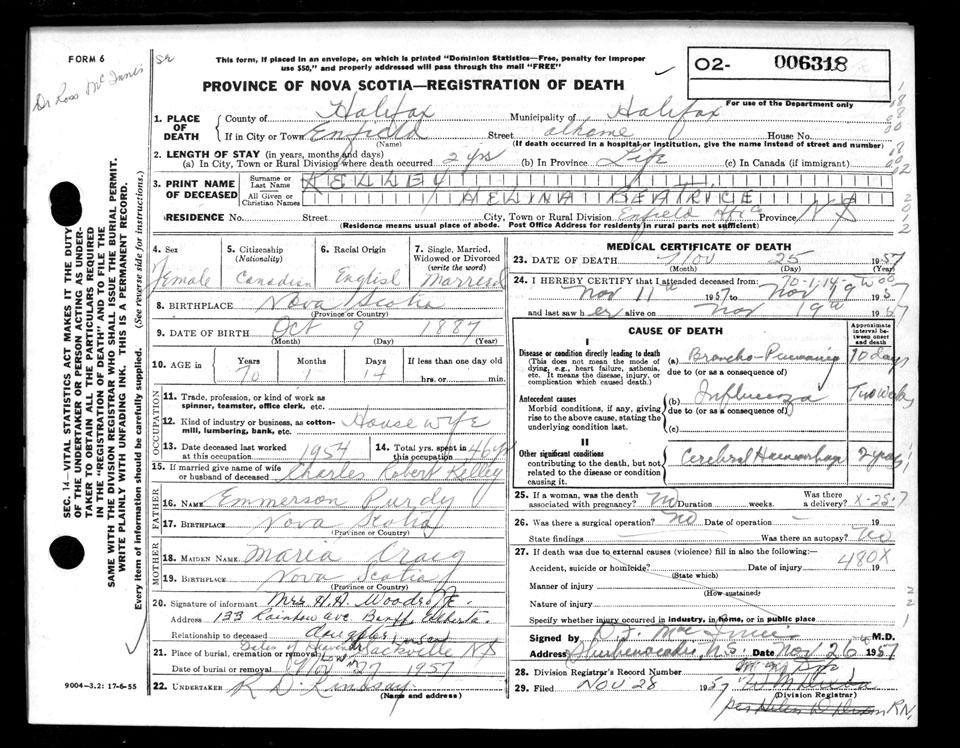 FORM 6
Dr Ross McInnis
This form, if placed in an envelope, on which is printed "Dominion Statistics—Free, penalty for improper
use $50," and properly addressed will pass through the mail "FREE"
02- 006318
For use of the Department only
PROVINCE OF NOVA SCOTIA—REGISTRATION OF DEATH
1. PLACE OF DEATH
County of Halifax Municipality of Halifax
If in City or Town Enfield Street at home House No.
(Name) (If death occurred in a hospital or institution, give the name instead of street and number)
2. LENGTH OF STAY (in years, months and days)
(a) In City, Town or Rural Division where death occurred 2 yrs (b) In Province Life (c) In Canada (if immigrant)
3. PRINT NAME OF DECEASED
Surname or Last Name KELLEY
All Given or Christian Names MELINA BEATRICE
RESIDENCE No. Street City, Town or Rural Division Enfield Hfx Province N S
(Residence means usual place of abode. Post Office Address for residents in rural parts not sufficient)
4. Sex Female
5. Citizenship (Nationality) Canadian
6. Racial Origin English
7. Single, Married, Widowed or Divorced (write the word) Married
8. BIRTHPLACE Nova Scotia
(Province or Country)
9. DATE OF BIRTH Oct 9 1887
(Month) (Day) (Year)
10. AGE in Years 70 Months 1 Days 14 If less than one day old
hrs. or min.
OCCUPATION
11. Trade, profession, or kind of work as
spinner, teamster, office clerk, etc.
12. Kind of industry or business, as cotton-
mill, lumbering, bank, etc. House wife
13. Date deceased last worked at this occupation 1954
14. Total yrs. spent in this occupation 46 yrs
15. If married give name of wife
or husband of deceased Charles Robert Kelley
FATHER
16. NAME Emmerson Purdy
17. BIRTHPLACE Nova Scotia
(Province or Country)
MOTHER
18. MAIDEN NAME Maria Craig
19. BIRTHPLACE Nova Scotia
(Province or Country)
20. Signature of informant Mrs H.A. Woodroffe
Address 133 Rainbow ave. Banff Alberta
Relationship to deceased daughter
21. Place of burial, cremation or removal Gates of Heaven Lower Sackville NS
Date of burial or removal Nov 27 1957
22. UNDERTAKER R D Lindsay
(Name and address)
9004—3.2: 17-6-55
MEDICAL CERTIFICATE OF DEATH
23. DATE OF DEATH Nov 25 1957
(Month) (Day) (Year)
70-1-14
24. I HEREBY CERTIFY that I attended deceased from:
Nov 11th 1957 to Nov 19th 1957
and last saw her alive on Nov 19th 1957
CAUSE OF DEATH
Approximate interval between onset and death
I
Disease or condition directly leading to death
(This does not mean the mode of
dying, e.g., heart failure, asthenia,
etc. It means the disease, injury, or
complication which caused death.)
(a) Broncho-Pneumonia 10 days
due to (or as a consequence of)
Antecedent causes
Morbid conditions, if any, giving
rise to the above cause, stating the
underlying condition last.
(b) Influenza Two Weeks
due to (or as a consequence of)
(c)
II
Other significant conditions
contributing to the death, but not
related to the disease or condition
causing it.
Cerebral Haemorrhage 2 years
25. If a woman, was the death
associated with pregnancy? No Duration weeks. Was there a delivery? X-25-7
26. Was there a surgical operation? No Date of operation 19
State findings Was there an autopsy? No
27. If death was due to external causes (violence) fill in also the following:— 480X
Accident, suicide or homicide? Date of injury 19
(State which)
Manner of injury
(How sustained)
Nature of injury
Specify whether injury occurred in industry, in home, or in public place
Signed by R.J. MacInnis M.D.
Address Shubenacadie, N.S. Date Nov 26th 1957
28. Division Registrar's Record Number
29. Filed Nov 28 1957 W M Dixon
(Division Registrar)
per Helen D Dixon R.N.
SEC. 14—VITAL STATISTICS ACT MAKES IT THE DUTY
OF THE UNDERTAKER OR PERSON ACTING AS UNDER-
TAKER TO OBTAIN ALL THE PARTICULARS REQUIRED
IN THE "REGISTRATION OF DEATH" AND TO FILE THE
SAME WITH THE DIVISION REGISTRAR WHO SHALL ISSUE THE BURIAL PERMIT.
WRITE PLAINLY WITH UNFADING INK. THIS IS A PERMANENT RECORD.
Every item of information should be carefully supplied. (See reverse side for instructions.)